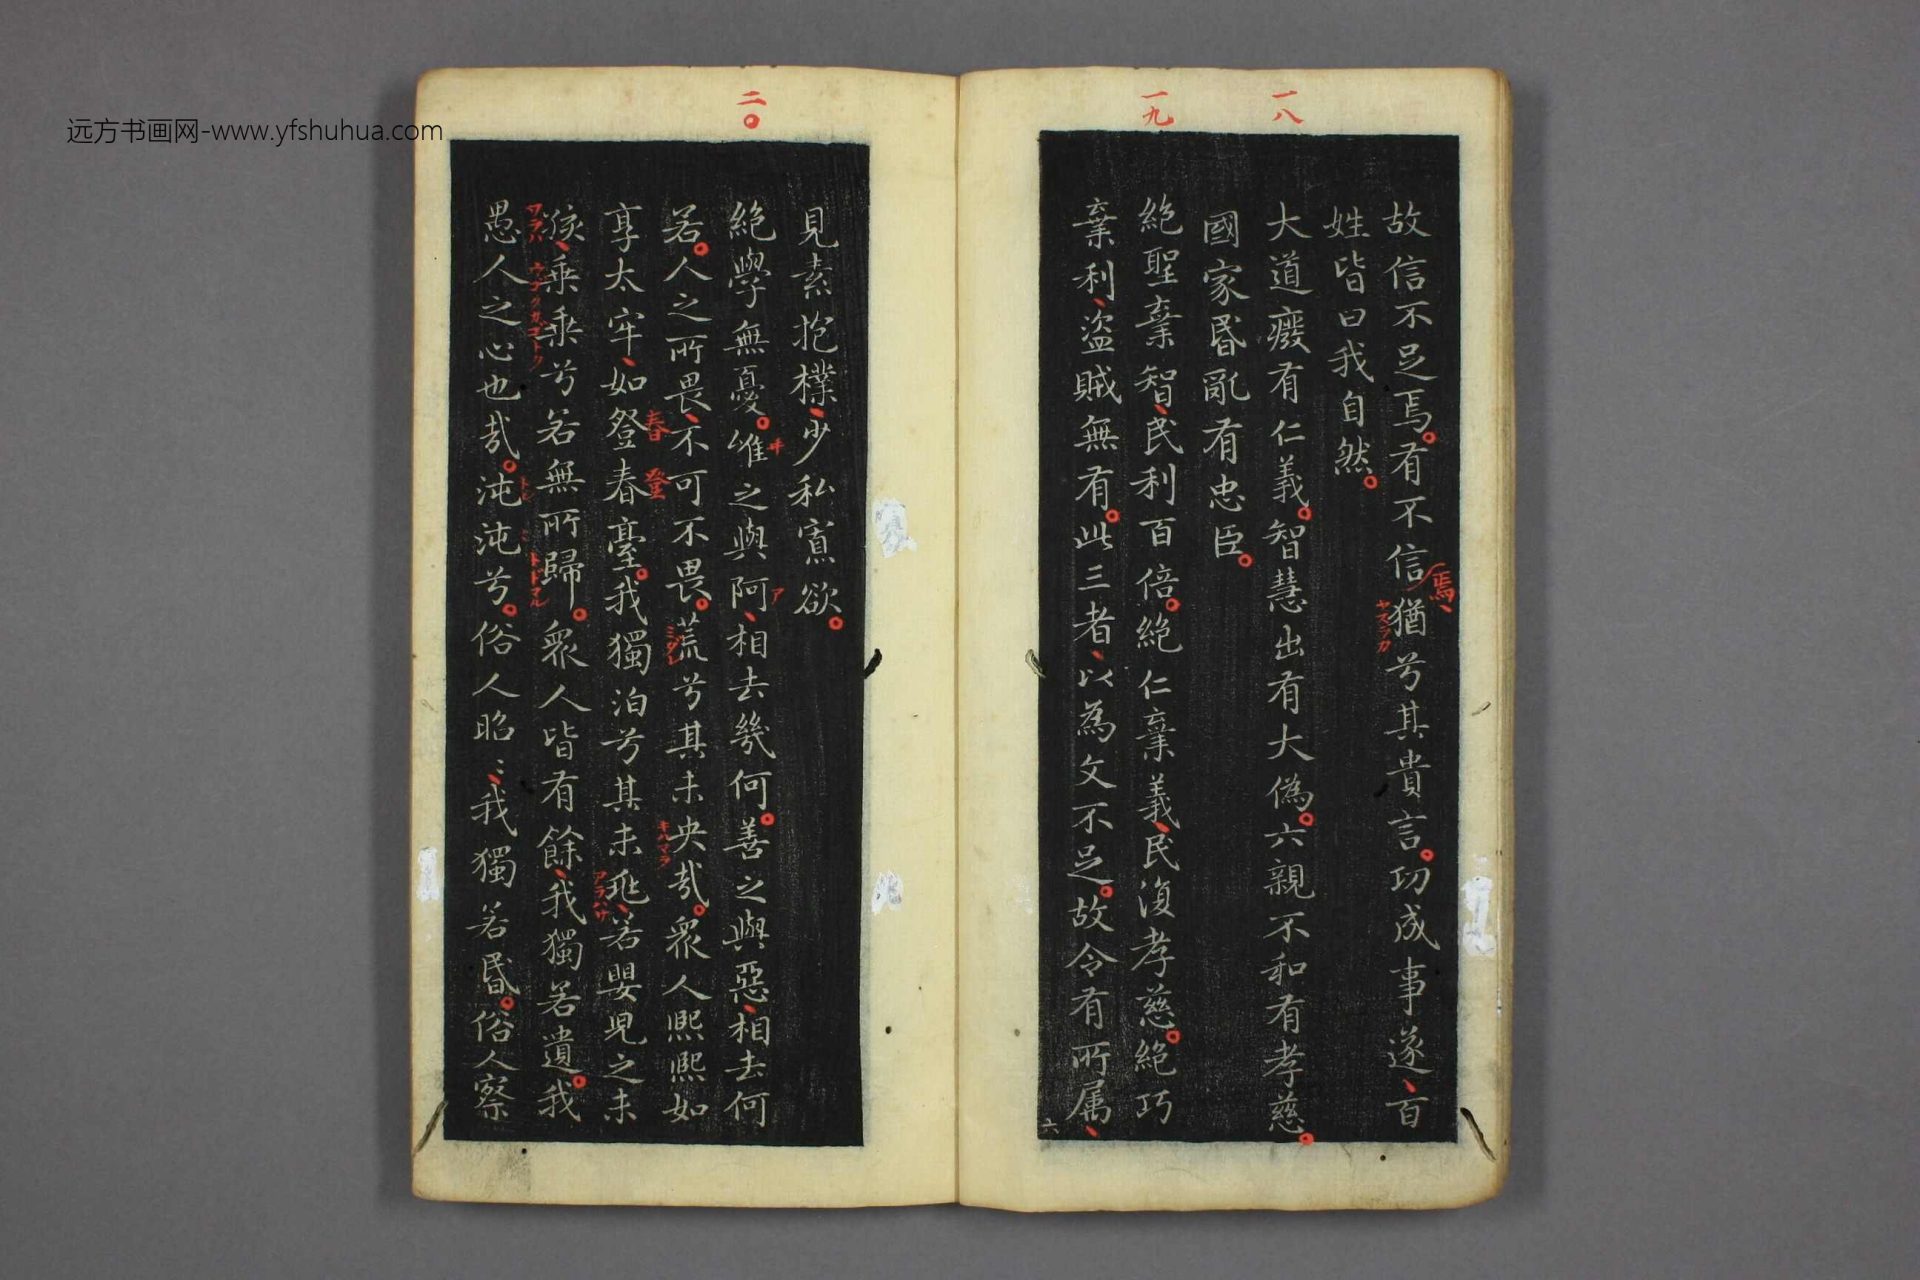 远方书画网-www.yfshuhua.com
一八
一九
故信不足焉有不信猶兮其貴言功成事遂百
焉
ヤスラカ
姓皆曰我自然
大道廢有仁義智慧出有大偽六親不和有孝慈
國家昬亂有忠臣
絕聖棄智民利百倍絕仁棄義民復孝慈絕巧
棄利盜賊無有此三者以為文不足故令有所属
六
二〇
見素抱樸少私寡欲
絕學無憂唯之與阿相去幾何善之與惡相去何
ヰ
ア
若人之所畏不可不畏荒兮其未央哉眾人熙熙如
キハマラ
享太牢如登春臺我獨泊兮其未兆若嬰兒之未
春
登
孩乘乘兮若無所歸眾人皆有餘我獨若遺我
トドマル
愚人之心也哉沌沌兮俗人昭〻我獨若昬俗人察
ワラハ